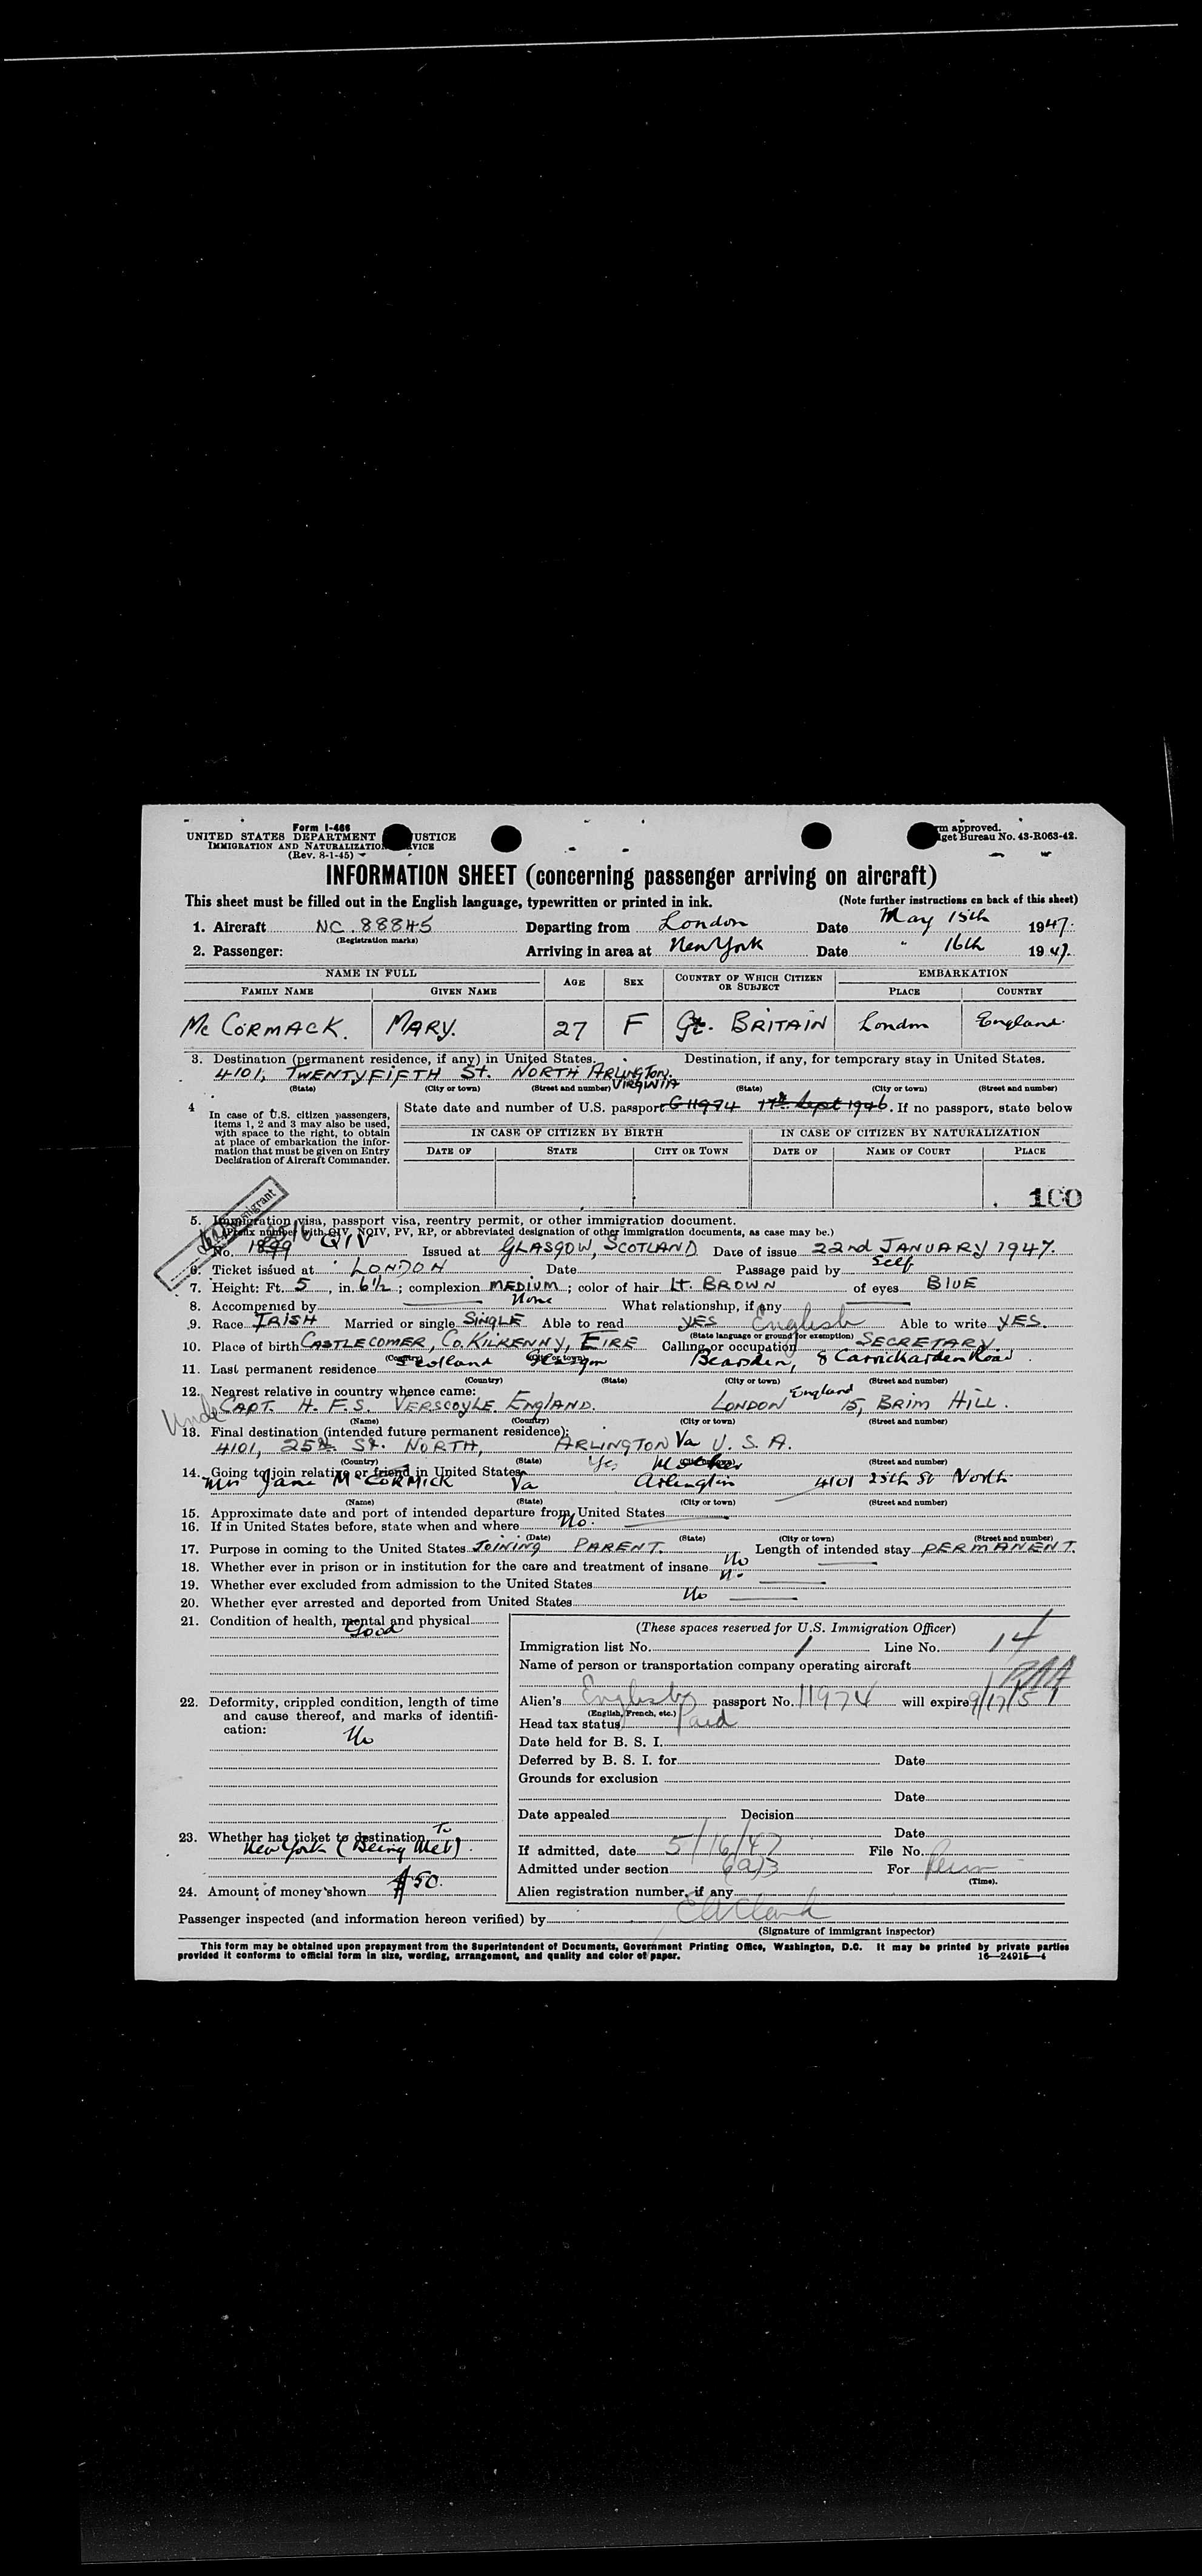 Form I-466
UNITED STATES DEPARTMENT USTICE
IMMIGRATION AND NATURALIZATION VICE
(Rev. 8-1-45)
m approved.
get Bureau No. 43-R063-42.
INFORMATION SHEET (concerning passenger arriving on aircraft)
This sheet must be filled out in the English language, typewritten or printed in ink. (Note further instructions on back of this sheet)
1. Aircraft NC. 88845 Departing from London Date May 15th 1947.
(Registration marks)
2. Passenger: Arriving in area at New York Date " 16th 1947.
NAME IN FULL AGE SEX COUNTRY OF WHICH CITIZEN OR SUBJECT EMBARKATION
FAMILY NAME GIVEN NAME PLACE COUNTRY
McCORMACK. MARY. 27 F Gt. BRITAIN London England.
3. Destination (permanent residence, if any) in United States. Destination, if any, for temporary stay in United States.
4101, TWENTYFIFTH St. NORTH ARLINGTON. VIRGINIA
(State) (City or town) (Street and number) (State) (City or town) (Street and number)
4 In case of U.S. citizen passengers, items 1, 2 and 3 may also be used, with space to the right, to obtain at place of embarkation the information that must be given on Entry Declaration of Aircraft Commander.
State date and number of U.S. passport G 11974 17th Sept 1946. If no passport, state below
IN CASE OF CITIZEN BY BIRTH IN CASE OF CITIZEN BY NATURALIZATION
DATE OF STATE CITY OR TOWN DATE OF NAME OF COURT PLACE
100
5. Immigration visa, passport visa, reentry permit, or other immigration document.
(Prefix number with QIV, NQIV, PV, RP, or abbreviated designation of other immigration documents, as case may be.)
No. 1899 QIV Issued at GLASGOW, SCOTLAND Date of issue 22nd JANUARY 1947.
6. Ticket issued at LONDON Date Passage paid by Self
7. Height: Ft. 5, in. 6 1/2; complexion MEDIUM; color of hair LT. BROWN of eyes BLUE
8. Accompanied by None What relationship, if any
9. Race IRISH Married or single SINGLE Able to read YES English Able to write YES.
(State language or ground for exemption)
10. Place of birth CASTLECOMER, CO. KILKENNY, EIRE Calling or occupation SECRETARY
(Country) (City or town)
11. Last permanent residence Scotland Glasgow Bearsden, 8 Carrickarden Road
(Country) (State) (City or town) (Street and number)
12. Nearest relative in country whence came:
Uncle CAPT. H. F. S. VERSCOYLE. ENGLAND. LONDON England 15, BRIM HILL.
(Name) (Country) (City or town) (Street and number)
13. Final destination (intended future permanent residence):
4101, 25th St. NORTH, ARLINGTON Va U. S. A.
(Country) (State) (City or town) (Street and number)
14. Going to join relative or friend in United States Yes Mother
Mrs Jane McCORMICK Va Arlington 4101 25th St North
(Name) (State) (City or town) (Street and number)
15. Approximate date and port of intended departure from United States
16. If in United States before, state when and where No.
(Date) (State) (City or town) (Street and number)
17. Purpose in coming to the United States JOINING PARENT. Length of intended stay PERMANENT.
18. Whether ever in prison or in institution for the care and treatment of insane No
19. Whether ever excluded from admission to the United States No
20. Whether ever arrested and deported from United States No
21. Condition of health, mental and physical
Good
22. Deformity, crippled condition, length of time and cause thereof, and marks of identification:
No
23. Whether has ticket to destination To
New York (Being Met).
24. Amount of money shown $50.
(These spaces reserved for U.S. Immigration Officer)
Immigration list No. 1 Line No. 14
Name of person or transportation company operating aircraft
Alien's passport No. 11974 will expire 9/17/51
(English, French, etc.)
Head tax status Paid
Date held for B. S. I.
Deferred by B. S. I. for Date
Grounds for exclusion
Date
Date appealed Decision
Date
If admitted, date 5/16/47 File No.
Admitted under section 6(a)3 For
(Time).
Alien registration number, if any
Passenger inspected (and information hereon verified) by
(Signature of immigrant inspector)
This form may be obtained upon prepayment from the Superintendent of Documents, Government Printing Office, Washington, D.C. It may be printed by private parties
provided it conforms to official form in size, wording, arrangement, and quality and color of paper. 16—24915-4